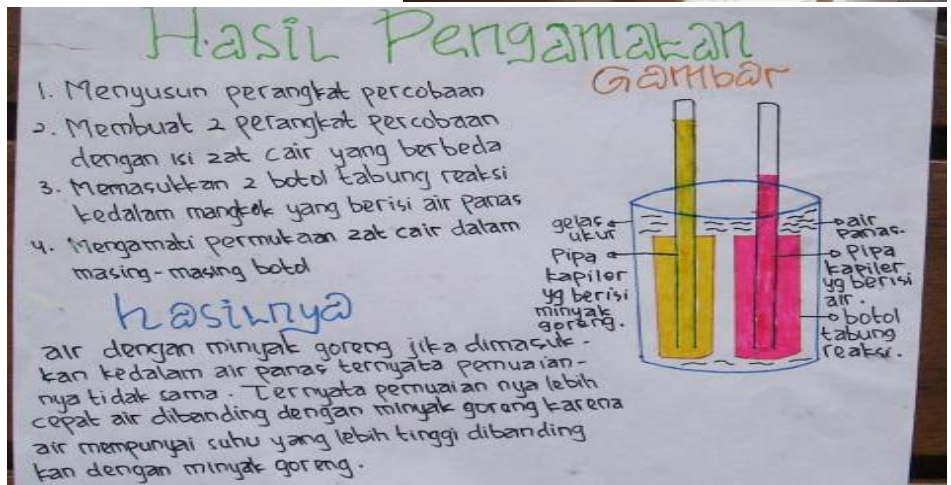 Hasil Pengamatan
1. Menyusun perangkat percobaan
2. Membuat 2 perangkat percobaan
dengan isi zat cair yang berbeda
3. Memasukkan 2 botol tabung reaksi
kedalam mangkok yang berisi air panas
4. Mengamati permukaan zat cair dalam
masing-masing botol
hasilnya
air dengan minyak goreng jika dimasuk-
kan kedalam air panas ternyata pemuaian-
nya tidak sama. Ternyata pemuaian nya lebih
cepat air dibanding dengan minyak goreng karena
air mempunyai suhu yang lebih tinggi dibanding
kan dengan minyak goreng.
Gambar
gelas
ukur
Pipa
kapiler
yg berisi
minyak
goreng.
air
panas.
Pipa
kapiler
yg berisi
air.
botol
tabung
reaksi.